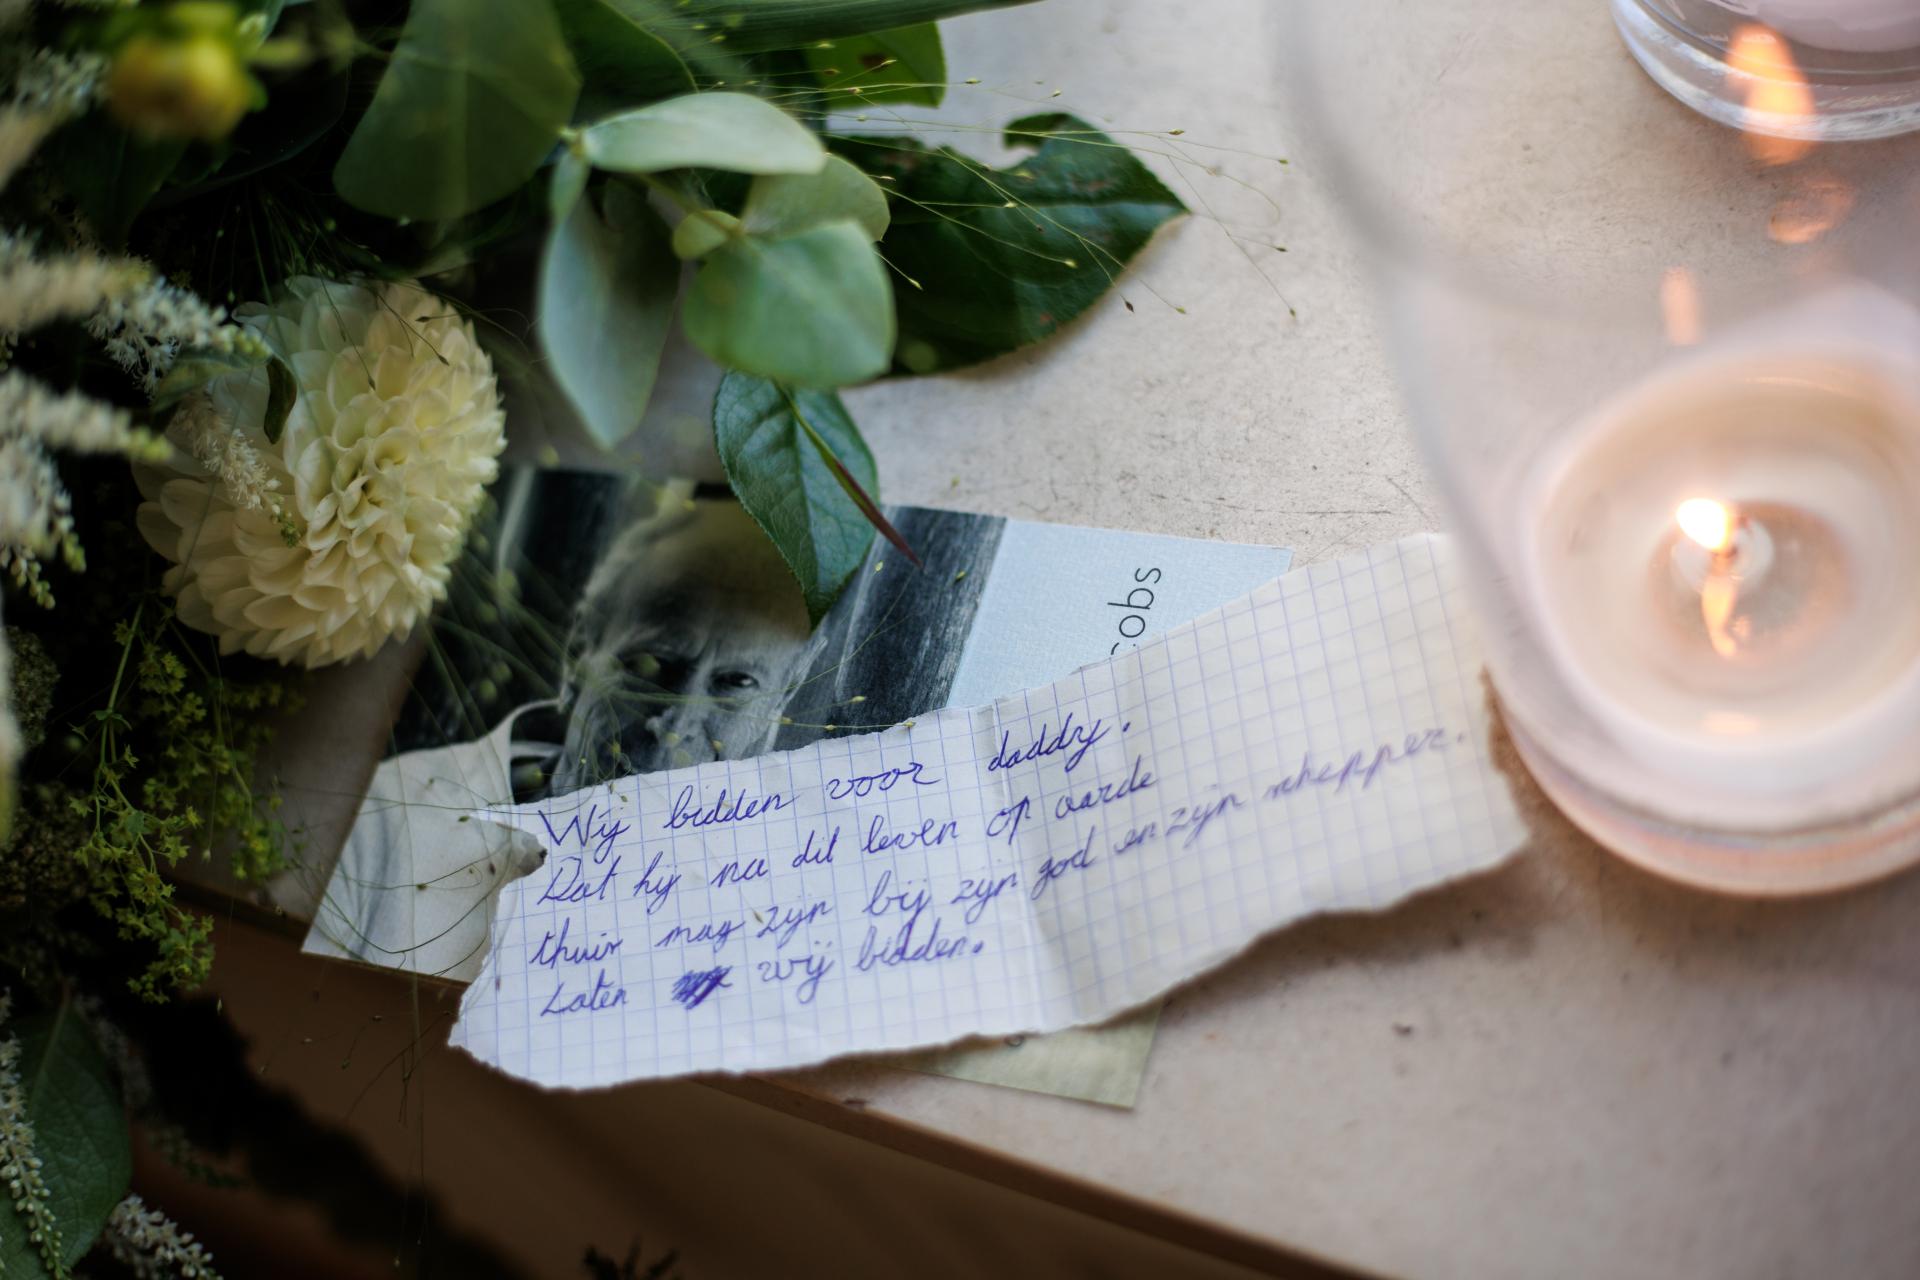 cobs
Wij bidden voor daddy.
Dat hij na dit leven op aarde
thuis mag zijn bij zijn god en zijn schepper.
Laten wij bidden.